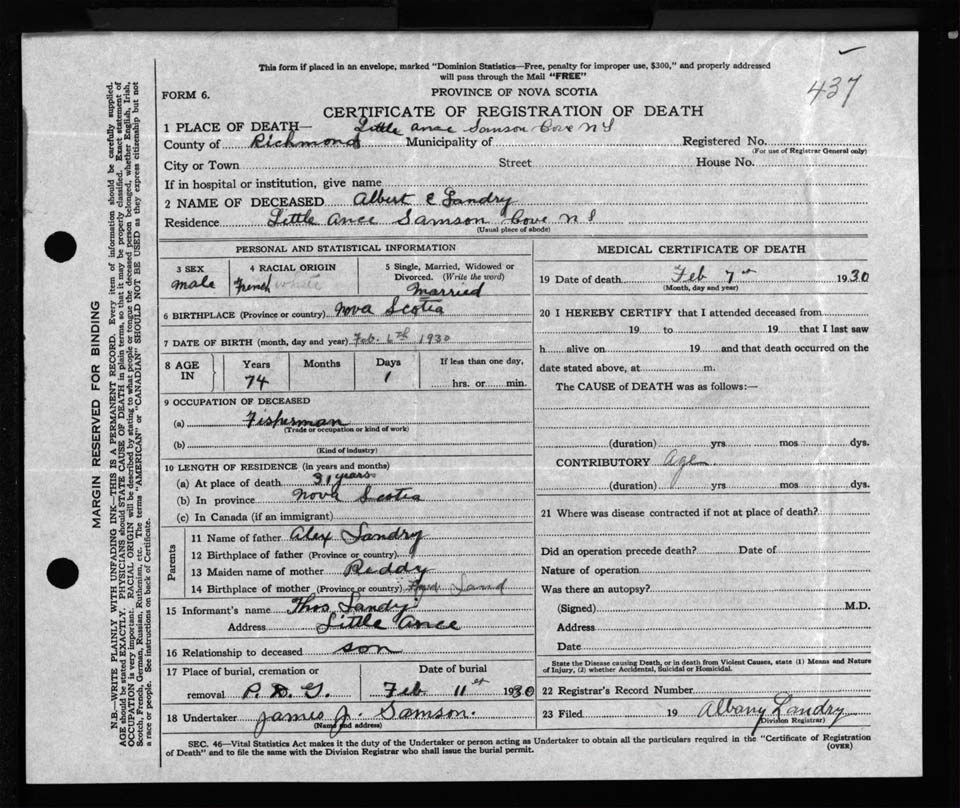 437
This form if placed in an envelope, marked "Dominion Statistics—Free, penalty for improper use, $300," and properly addressed
will pass through the Mail "FREE"
FORM 6.
PROVINCE OF NOVA SCOTIA
CERTIFICATE OF REGISTRATION OF DEATH
1 PLACE OF DEATH— Little Ance Samson Cove N S
County of Richmond Municipality of Registered No.
(For use of Registrar General only)
City or Town Street House No.
If in hospital or institution, give name
2 NAME OF DECEASED Albert E Landry
Residence Little Ance Samson Cove N S
(Usual place of abode)
PERSONAL AND STATISTICAL INFORMATION
3 SEX male
4 RACIAL ORIGIN French white
5 Single, Married, Widowed or
Divorced. (Write the word)
Married
6 BIRTHPLACE (Province or country) Nova Scotia
7 DATE OF BIRTH (month, day and year) Feb. 6th 1930
8 AGE IN
Years Months Days If less than one day,
74 1 hrs. or min.
9 OCCUPATION OF DECEASED
(a) Fisherman
(Trade or occupation or kind of work)
(b)
(Kind of industry)
10 LENGTH OF RESIDENCE (in years and months)
(a) At place of death 31 years
(b) In province Nova Scotia
(c) In Canada (if an immigrant)
Parents
11 Name of father Alex Landry
12 Birthplace of father (Province or country)
13 Maiden name of mother Reddy
14 Birthplace of mother (Province or country) Land
15 Informant's name Thos Landy
Address Little Ance
16 Relationship to deceased son
17 Place of burial, cremation or Date of burial
removal P.D.G. Feb 11st 1930
18 Undertaker James J. Samson.
(Name and address)
MEDICAL CERTIFICATE OF DEATH
19 Date of death Feb 7th 1930
(Month, day and year)
20 I HEREBY CERTIFY that I attended deceased from
19 to 19 that I last saw
h alive on 19 and that death occurred on the
date stated above, at m.
The CAUSE of DEATH was as follows:—
(duration) yrs mos dys.
CONTRIBUTORY Age
(duration) yrs mos dys.
21 Where was disease contracted if not at place of death?
Did an operation precede death? Date of
Nature of operation
Was there an autopsy?
(Signed) M.D.
Address
Date
State the Disease causing Death, or in death from Violent Causes, state (1) Means and Nature
of Injury, (2) whether Accidental, Suicidal or Homicidal.
22 Registrar's Record Number
23 Filed 19 Albany Landry
(Division Registrar)
SEC. 46—Vital Statistics Act makes it the duty of the Undertaker or person acting as Undertaker to obtain all the particulars required in the "Certificate of Registration
of Death" and to file the same with the Division Registrar who shall issue the burial permit.
(OVER)
MARGIN RESERVED FOR BINDING
N.B.—WRITE PLAINLY WITH UNFADING INK—THIS IS A PERMANENT RECORD. Every item of information should be carefully supplied.
AGE should be stated EXACTLY. PHYSICIANS should STATE CAUSE OF DEATH in plain terms, so that it may be properly classified. Exact statement of
OCCUPATION is very important. RACIAL ORIGIN will be described by stating to what people or tongue the deceased person belonged, whether English, Irish,
Scotch, French, German, Russian, Ruthenian, etc. The terms "AMERICAN" or "CANADIAN" SHOULD NOT BE USED as they express citizenship but not
a race or people. See instructions on back of Certificate.